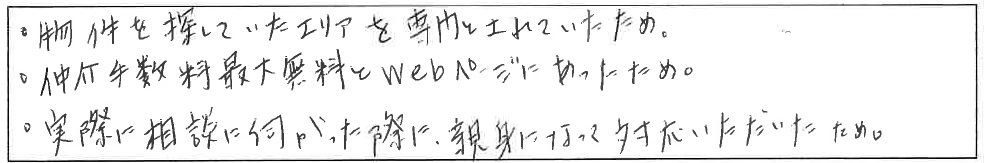 ・物件を探していたエリアを専門とされていたため。
・仲介手数料最大無料とWebページにあったため。
・実際に相談に伺がった際に、親身になって対応いただいたため。